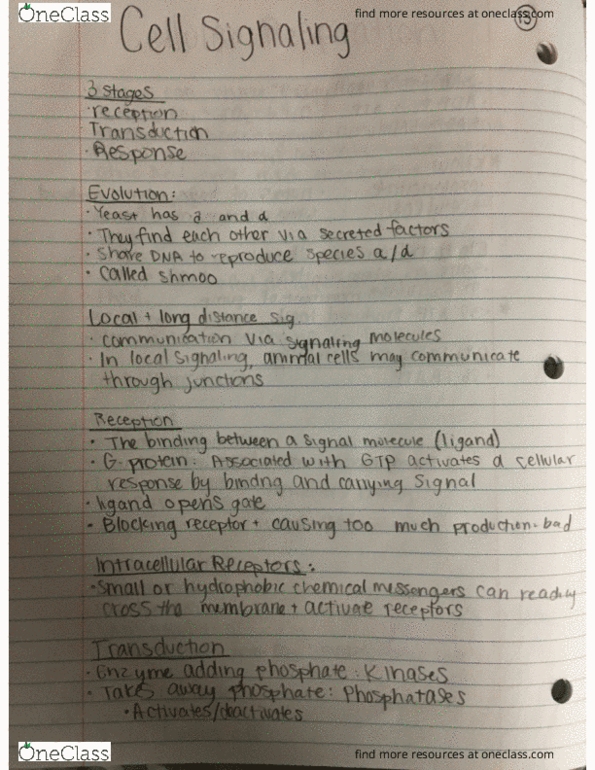 OneClass
find more resources at oneclass.com
15
Cell Signaling
3 stages
· reception
· Transduction
· Response
Evolution:
· Yeast has a and α
· They find each other via secreted factors
· Share DNA to reproduce species a/α
· Called shmoo
Local + long distance sig.
· communication via signaling molecules
· In local signaling, animal cells may communicate
through junctions
Reception
· The binding between a signal molecule (ligand)
· G-protein: Associated with GTP activates a cellular
response by bindng and carrying signal
· ligand opens gate
· Blocking receptor + causing too much production-bad
Intracellular Receptors:
· Small or hydrophobic chemical messengers can readily
cross the membrane + activate receptors
Transduction
· Enzyme adding phosphate: Kinases
· Takes away phosphate: Phosphatases
· Activates/deactivates
OneClass
find more resources at oneclass.com